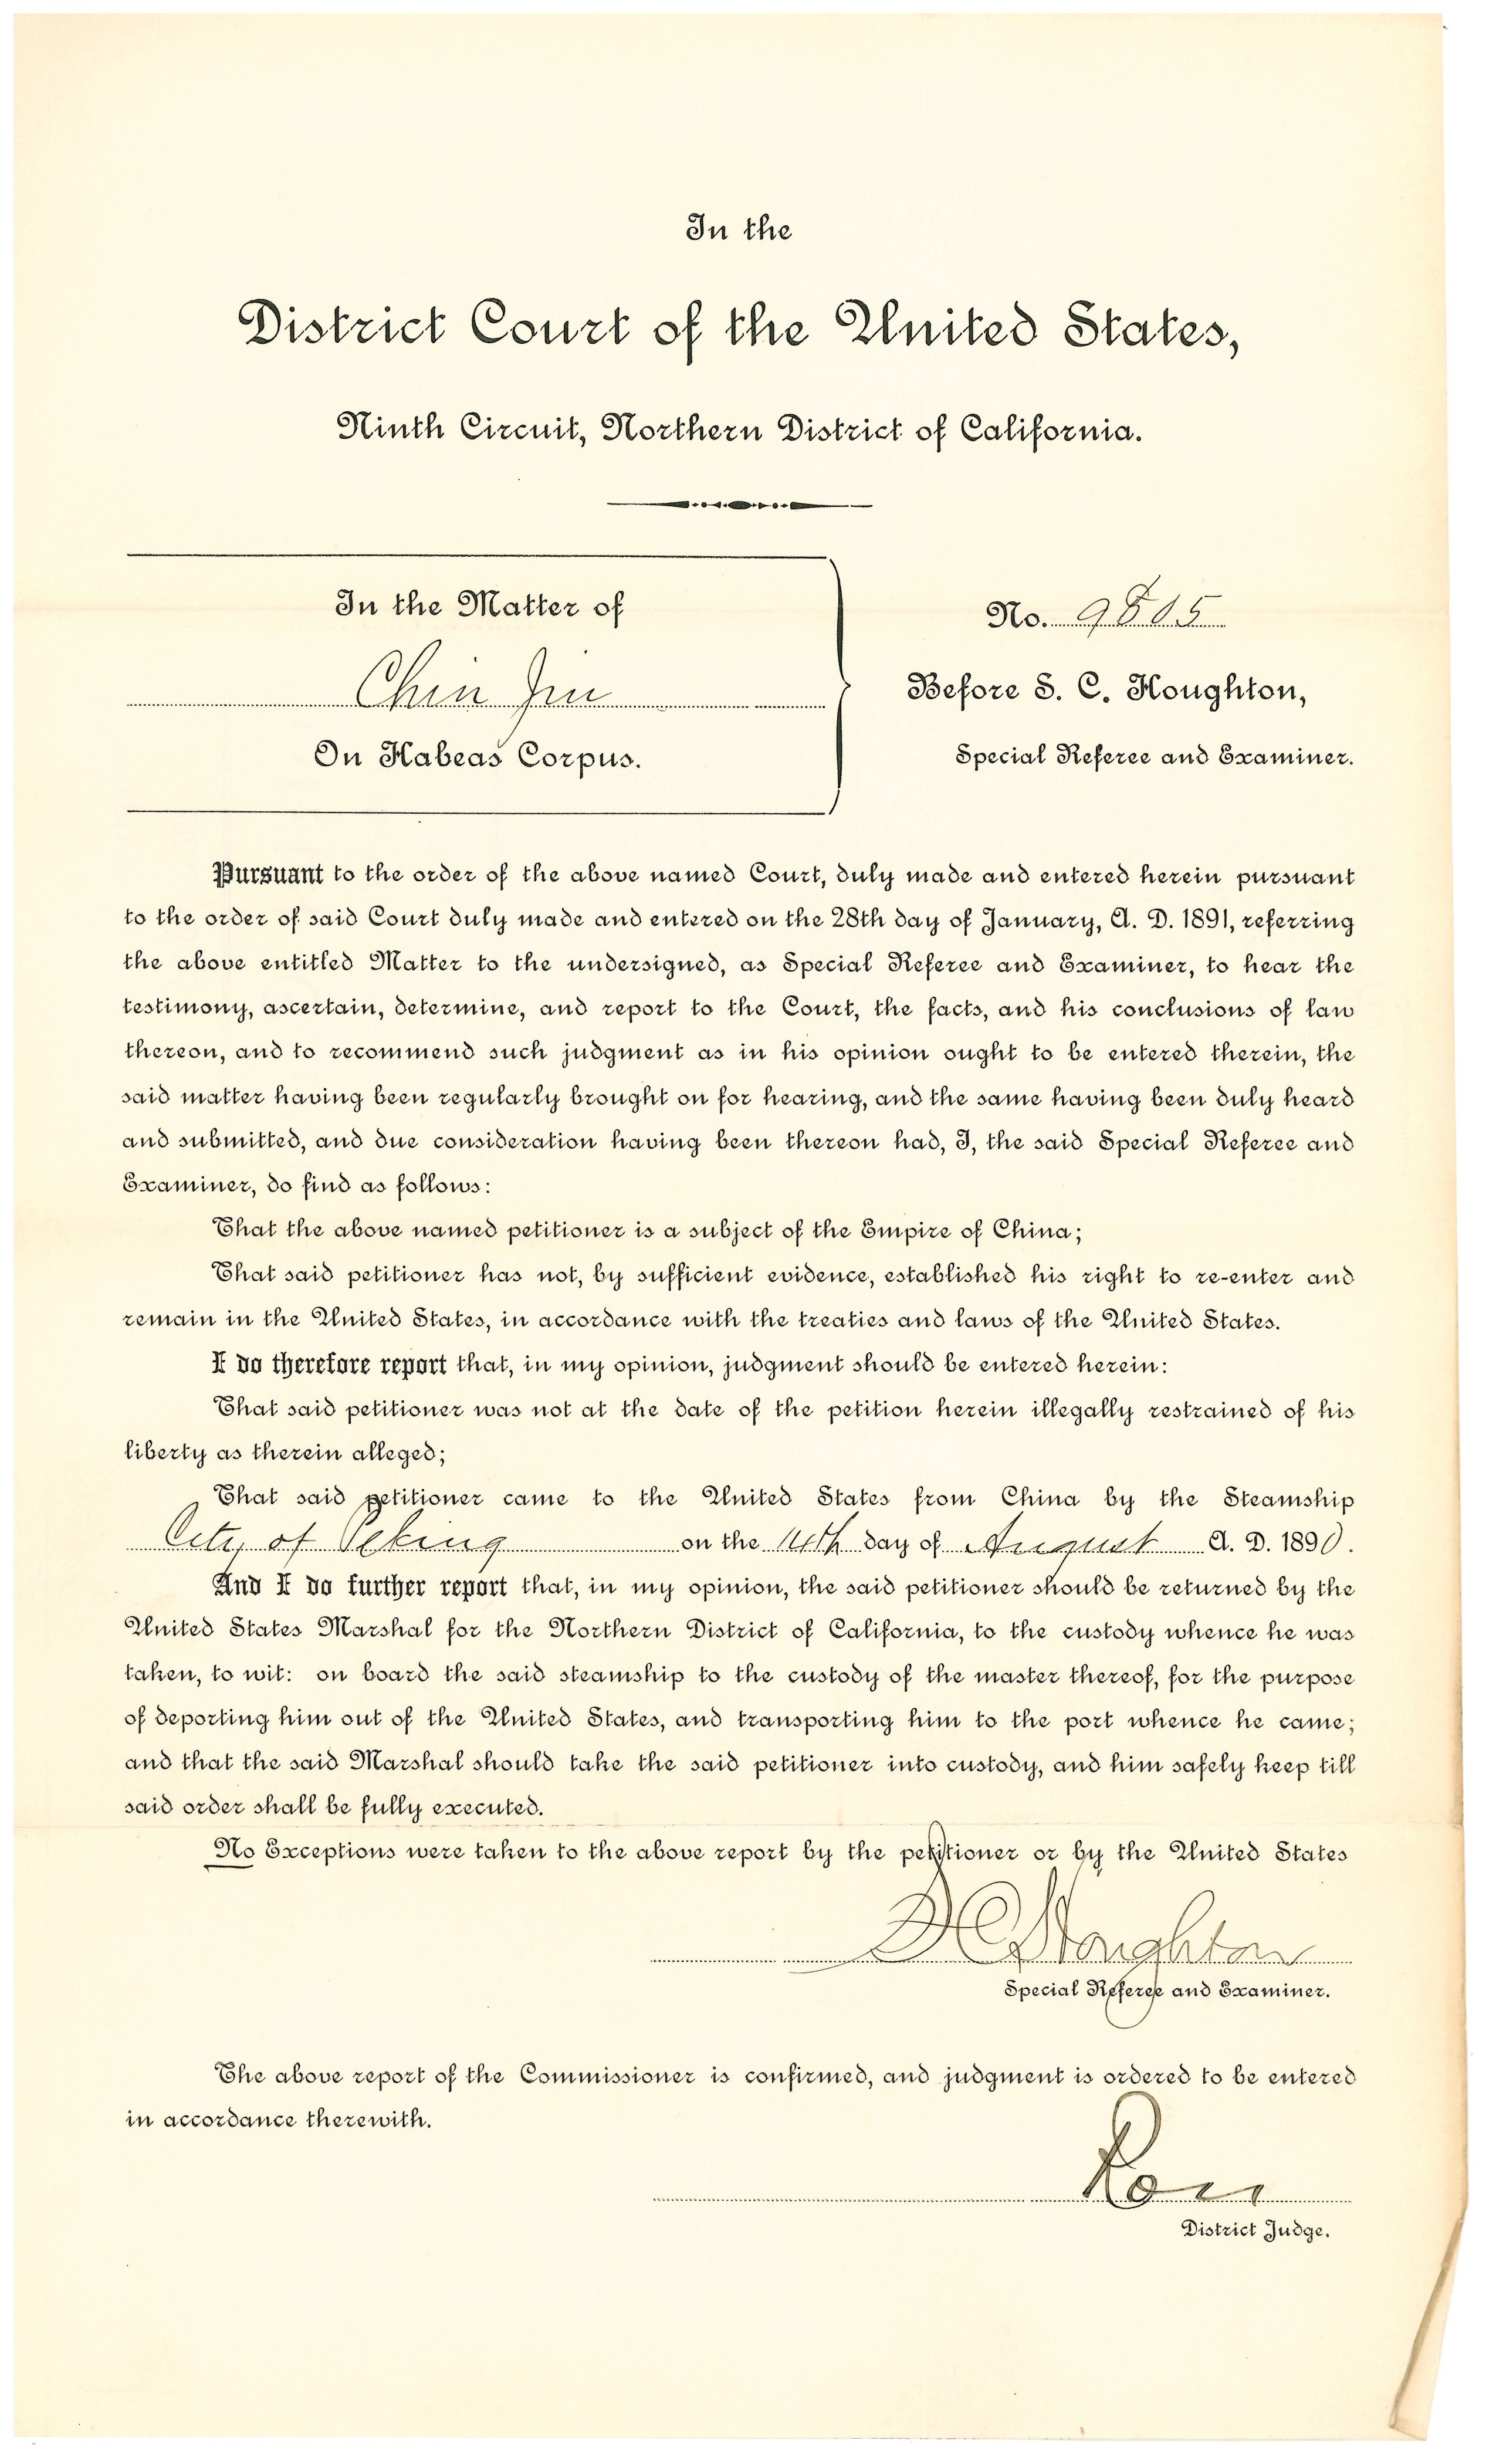 In the
District Court of the United States,
Ninth Circuit, Northern District of California.
In the Matter of
Chin Jin
On Habeas Corpus.
No. 9805
Before S. C. Houghton,
Special Referee and Examiner.
Pursuant to the order of the above named Court, duly made and entered herein pursuant
to the order of said Court duly made and entered on the 28th day of January, A. D. 1891, referring
the above entitled Matter to the undersigned, as Special Referee and Examiner, to hear the
testimony, ascertain, determine, and report to the Court, the facts, and his conclusions of law
thereon, and to recommend such judgment as in his opinion ought to be entered therein, the
said matter having been regularly brought on for hearing, and the same having been duly heard
and submitted, and due consideration having been thereon had, I, the said Special Referee and
Examiner, do find as follows:
That the above named petitioner is a subject of the Empire of China;
That said petitioner has not, by sufficient evidence, established his right to re-enter and
remain in the United States, in accordance with the treaties and laws of the United States.
I do therefore report that, in my opinion, judgment should be entered herein:
That said petitioner was not at the date of the petition herein illegally restrained of his
liberty as therein alleged;
That said petitioner came to the United States from China by the Steamship
City of Peking on the 14th day of August A. D. 1890.
And I do further report that, in my opinion, the said petitioner should be returned by the
United States Marshal for the Northern District of California, to the custody whence he was
taken, to wit: on board the said steamship to the custody of the master thereof, for the purpose
of deporting him out of the United States, and transporting him to the port whence he came;
and that the said Marshal should take the said petitioner into custody, and him safely keep till
said order shall be fully executed.
No Exceptions were taken to the above report by the petitioner or by the United States
S C Houghton
Special Referee and Examiner.
The above report of the Commissioner is confirmed, and judgment is ordered to be entered
in accordance therewith.
Ross
District Judge.